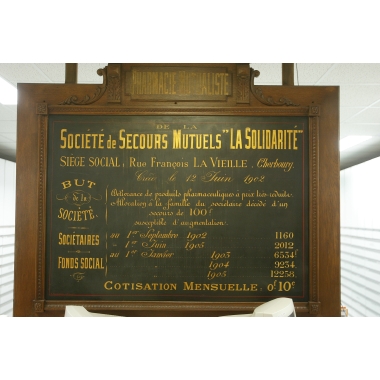 PHARMACIE MUTUALISTE
DE LA
SOCIÉTÉ de SECOURS MUTUELS "LA SOLIDARITÉ"
SIEGE SOCIAL : Rue François LA VIEILLE, Cherbourg
Créée le 12 Juin 1902
BUT de la SOCIÉTÉ.
Délivrance de produits pharmaceutiques à prix très réduits.
Allocation à la famille du sociétaire décédé d'un
secours de 100f
susceptible d'augmentation.
SOCIÉTAIRES au 1er Septembre 1902 1160
" 1er Juin 1905 2012
FONDS SOCIAL au 1er Janvier 1903 6334f
" 1904 9234
" 1905 12238
COTISATION MENSUELLE : 0f10c